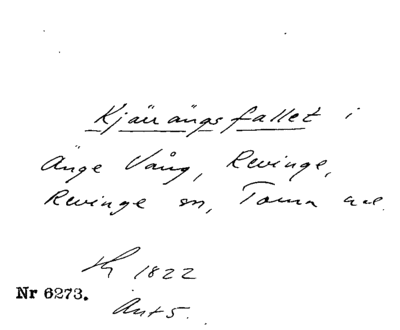 Kjärrängsfallet i
Änge Vång, Revinge,
Revinge sn, Torna hd.
Lh 1822
Nr 6273.
Ant 5.